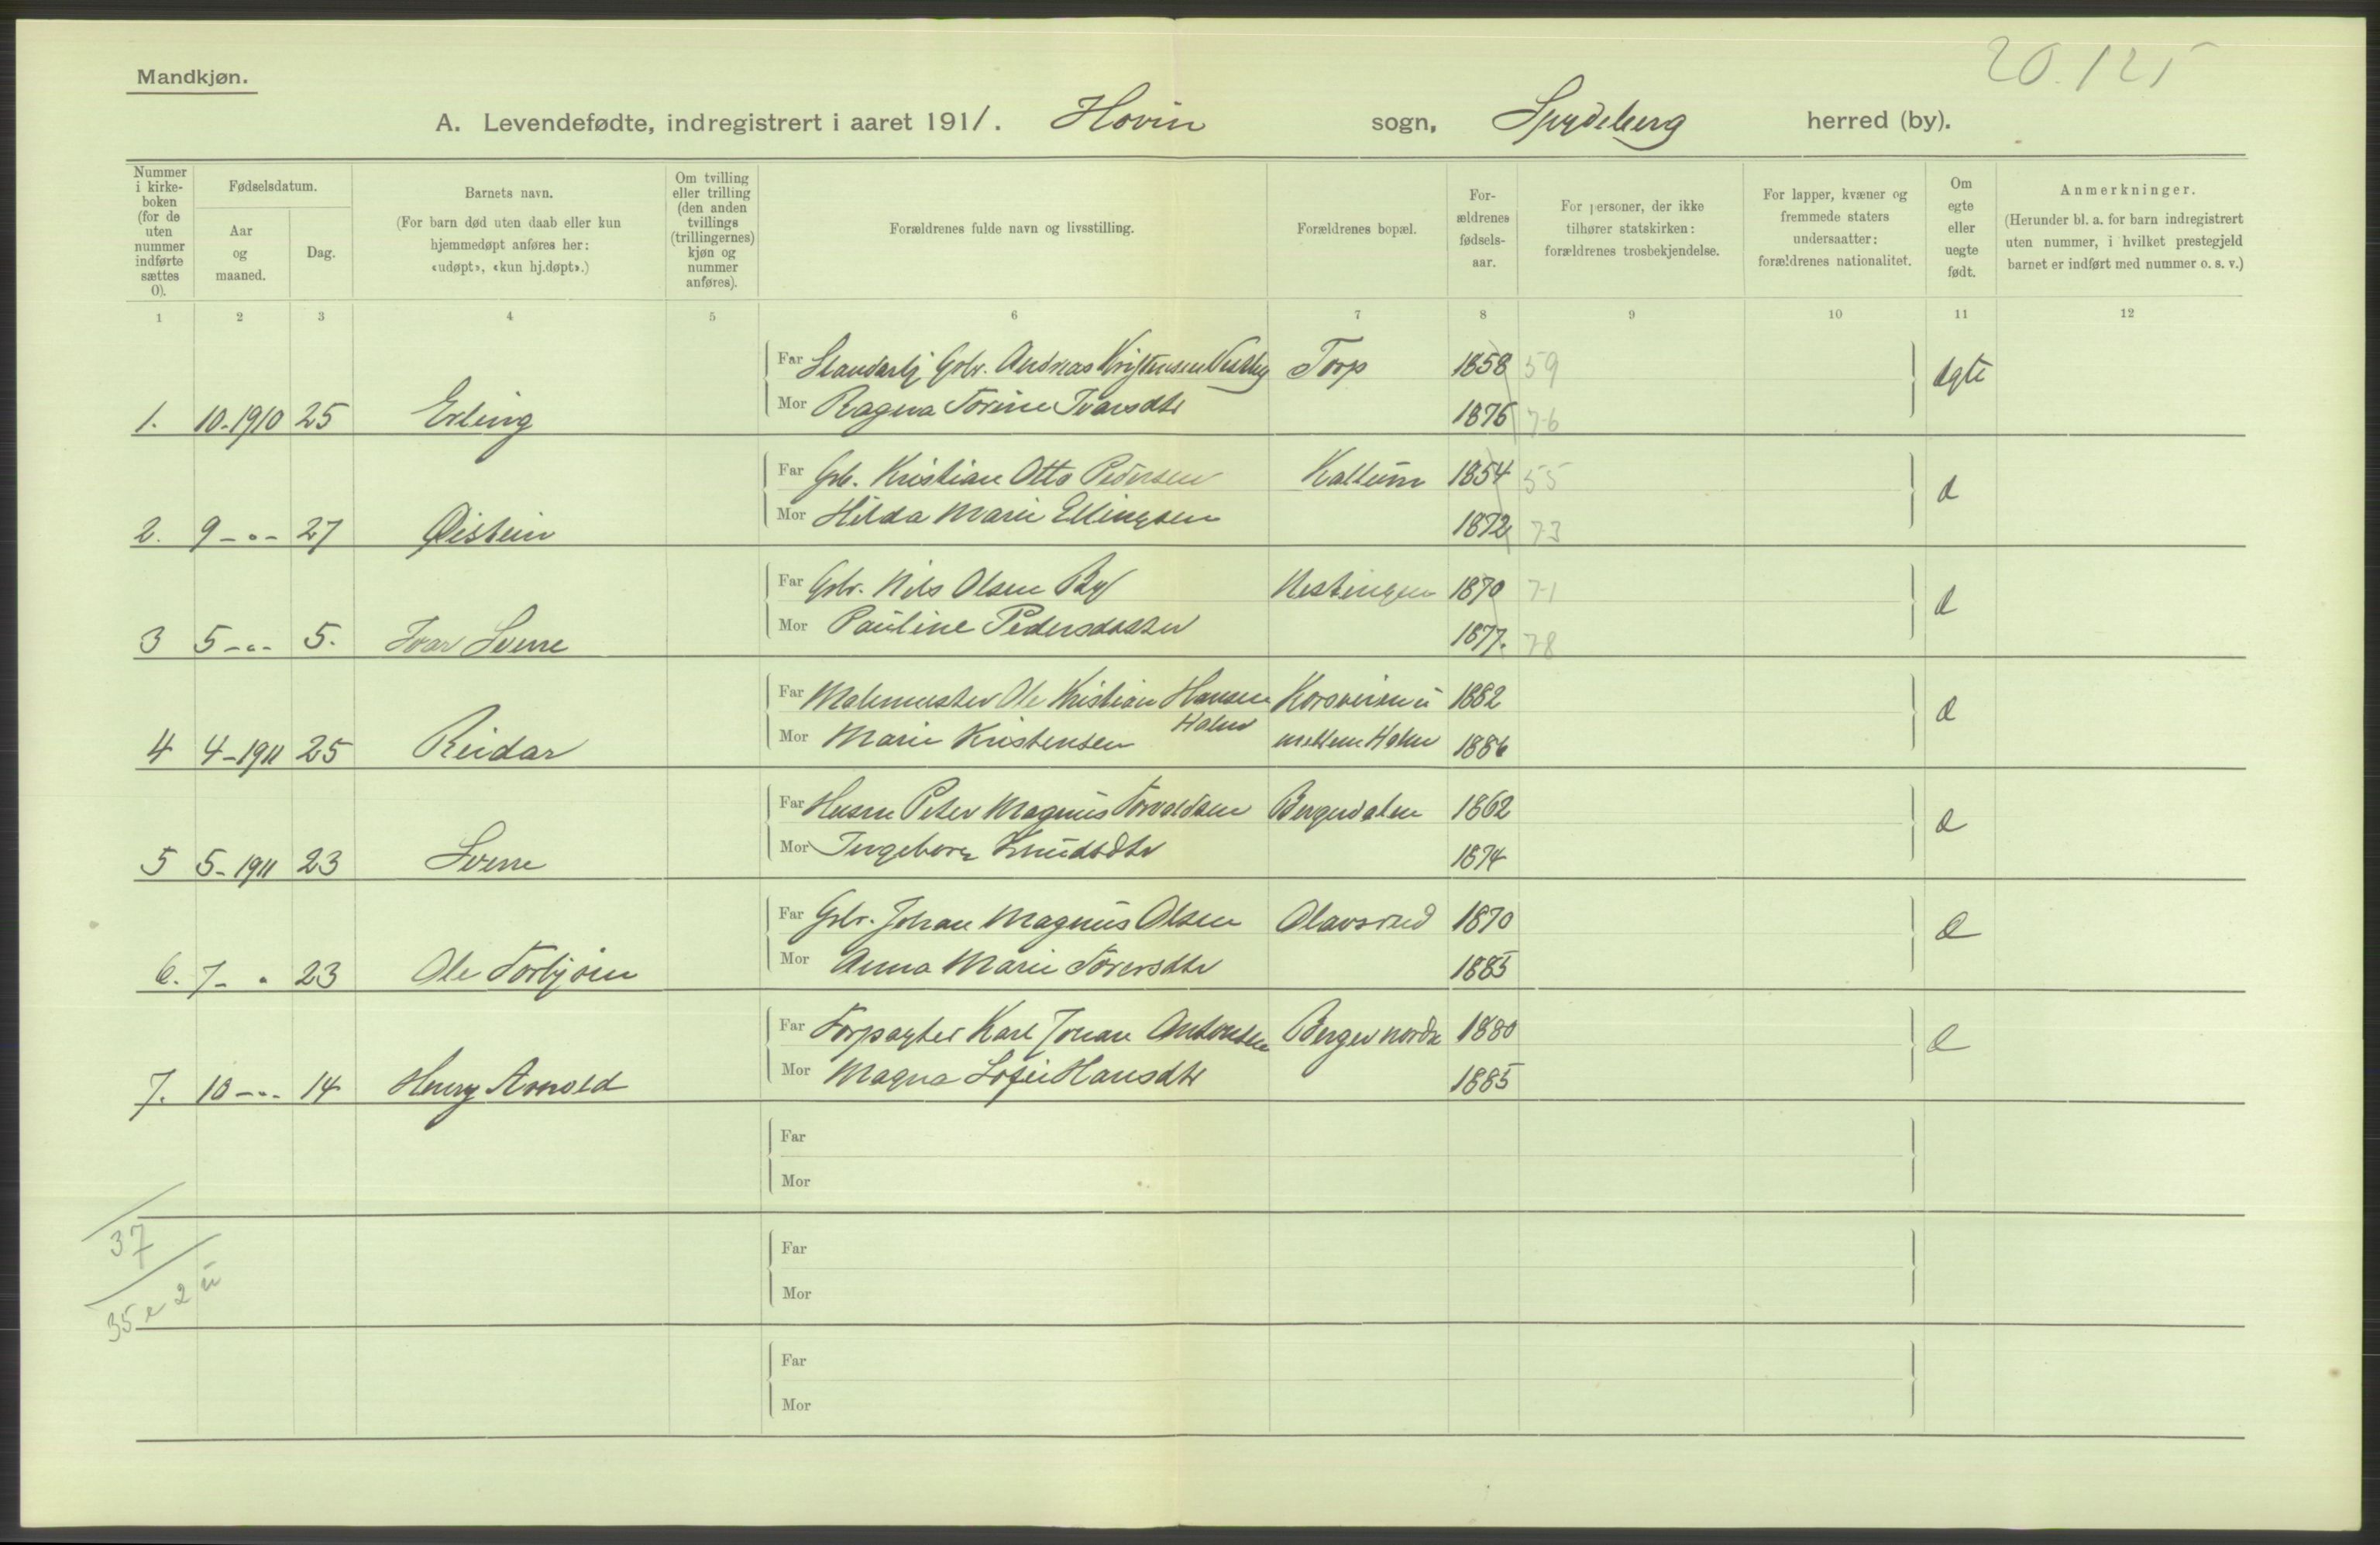 20.125
Mandkjøn.
A. Levendefødte, indregistrert i aaret 1911. Hovin sogn, Spydeberg herred (by).
Nummer i kirkeboken (for de uten nummer indførte sættes 0).
Fødselsdatum.
Aar og maaned.
Dag.
Barnets navn.
(For barn død uten daab eller kun hjemmedøpt anføres her: «udøpt», «kun hj.døpt».)
Om tvilling eller trilling (den anden tvillings (trillingernes) kjøn og nummer anføres).
Forældrenes fulde navn og livsstilling.
Forældrenes bopæl.
Forældrenes fødselsaar.
For personer, der ikke tilhører statskirken: forældrenes trosbekjendelse.
For lapper, kvæner og fremmede staters undersaatter: forældrenes nationalitet.
Om egte eller uegte født.
Anmerkninger.
(Herunder bl. a. for barn indregistrert uten nummer, i hvilket prestegjeld barnet er indført med nummer o. s. v.)
1 2 3 4 5 6 7 8 9 10 11 12
Far Gbr. Andreas Kristensen Torp 1858 59 egte
1. 10-1910 25 Erling Mor Ragna Torine Ivarsdtr 1876 76
Far Gb. Kristian Otto Pedersen Kallum 1854 55 d
2. 9 -"- 27 Øistein Mor Hilda Marie Ellingsen 1872 73
Far Gbr. Nils Olsen By Nestingen 1870 71 d
3 5 -"- 5. Ivar Sverre Mor Pauline Pedersdatter 1877. 78
Far Malermester Ole Kristian Hansen Korsveien u 1882 d
Holm
4 4-1911 25 Reidar Mor Marie Kristensen mellem Holm 1886
Far Husm Peter Magnus Torvaldsen Bergerdalen 1862 d
5 5-1911 23 Sverre Mor Ingeborg Knudsdtr 1874
Far Gbr. Johan Magnus Olsen Olavsrud 1870 d
6. 7- " 23 Ole Torbjørn Mor Anna Marie Torersdtr 1885
Far Forpagter Karl Johan Antonsen Berger nordre 1880 d
7. 10 -"- 14 Henry Arnold Mor Magna Sofie Hansdtr 1885
Far
Mor
37
Far
Mor
35 e 2 u
Far
Mor